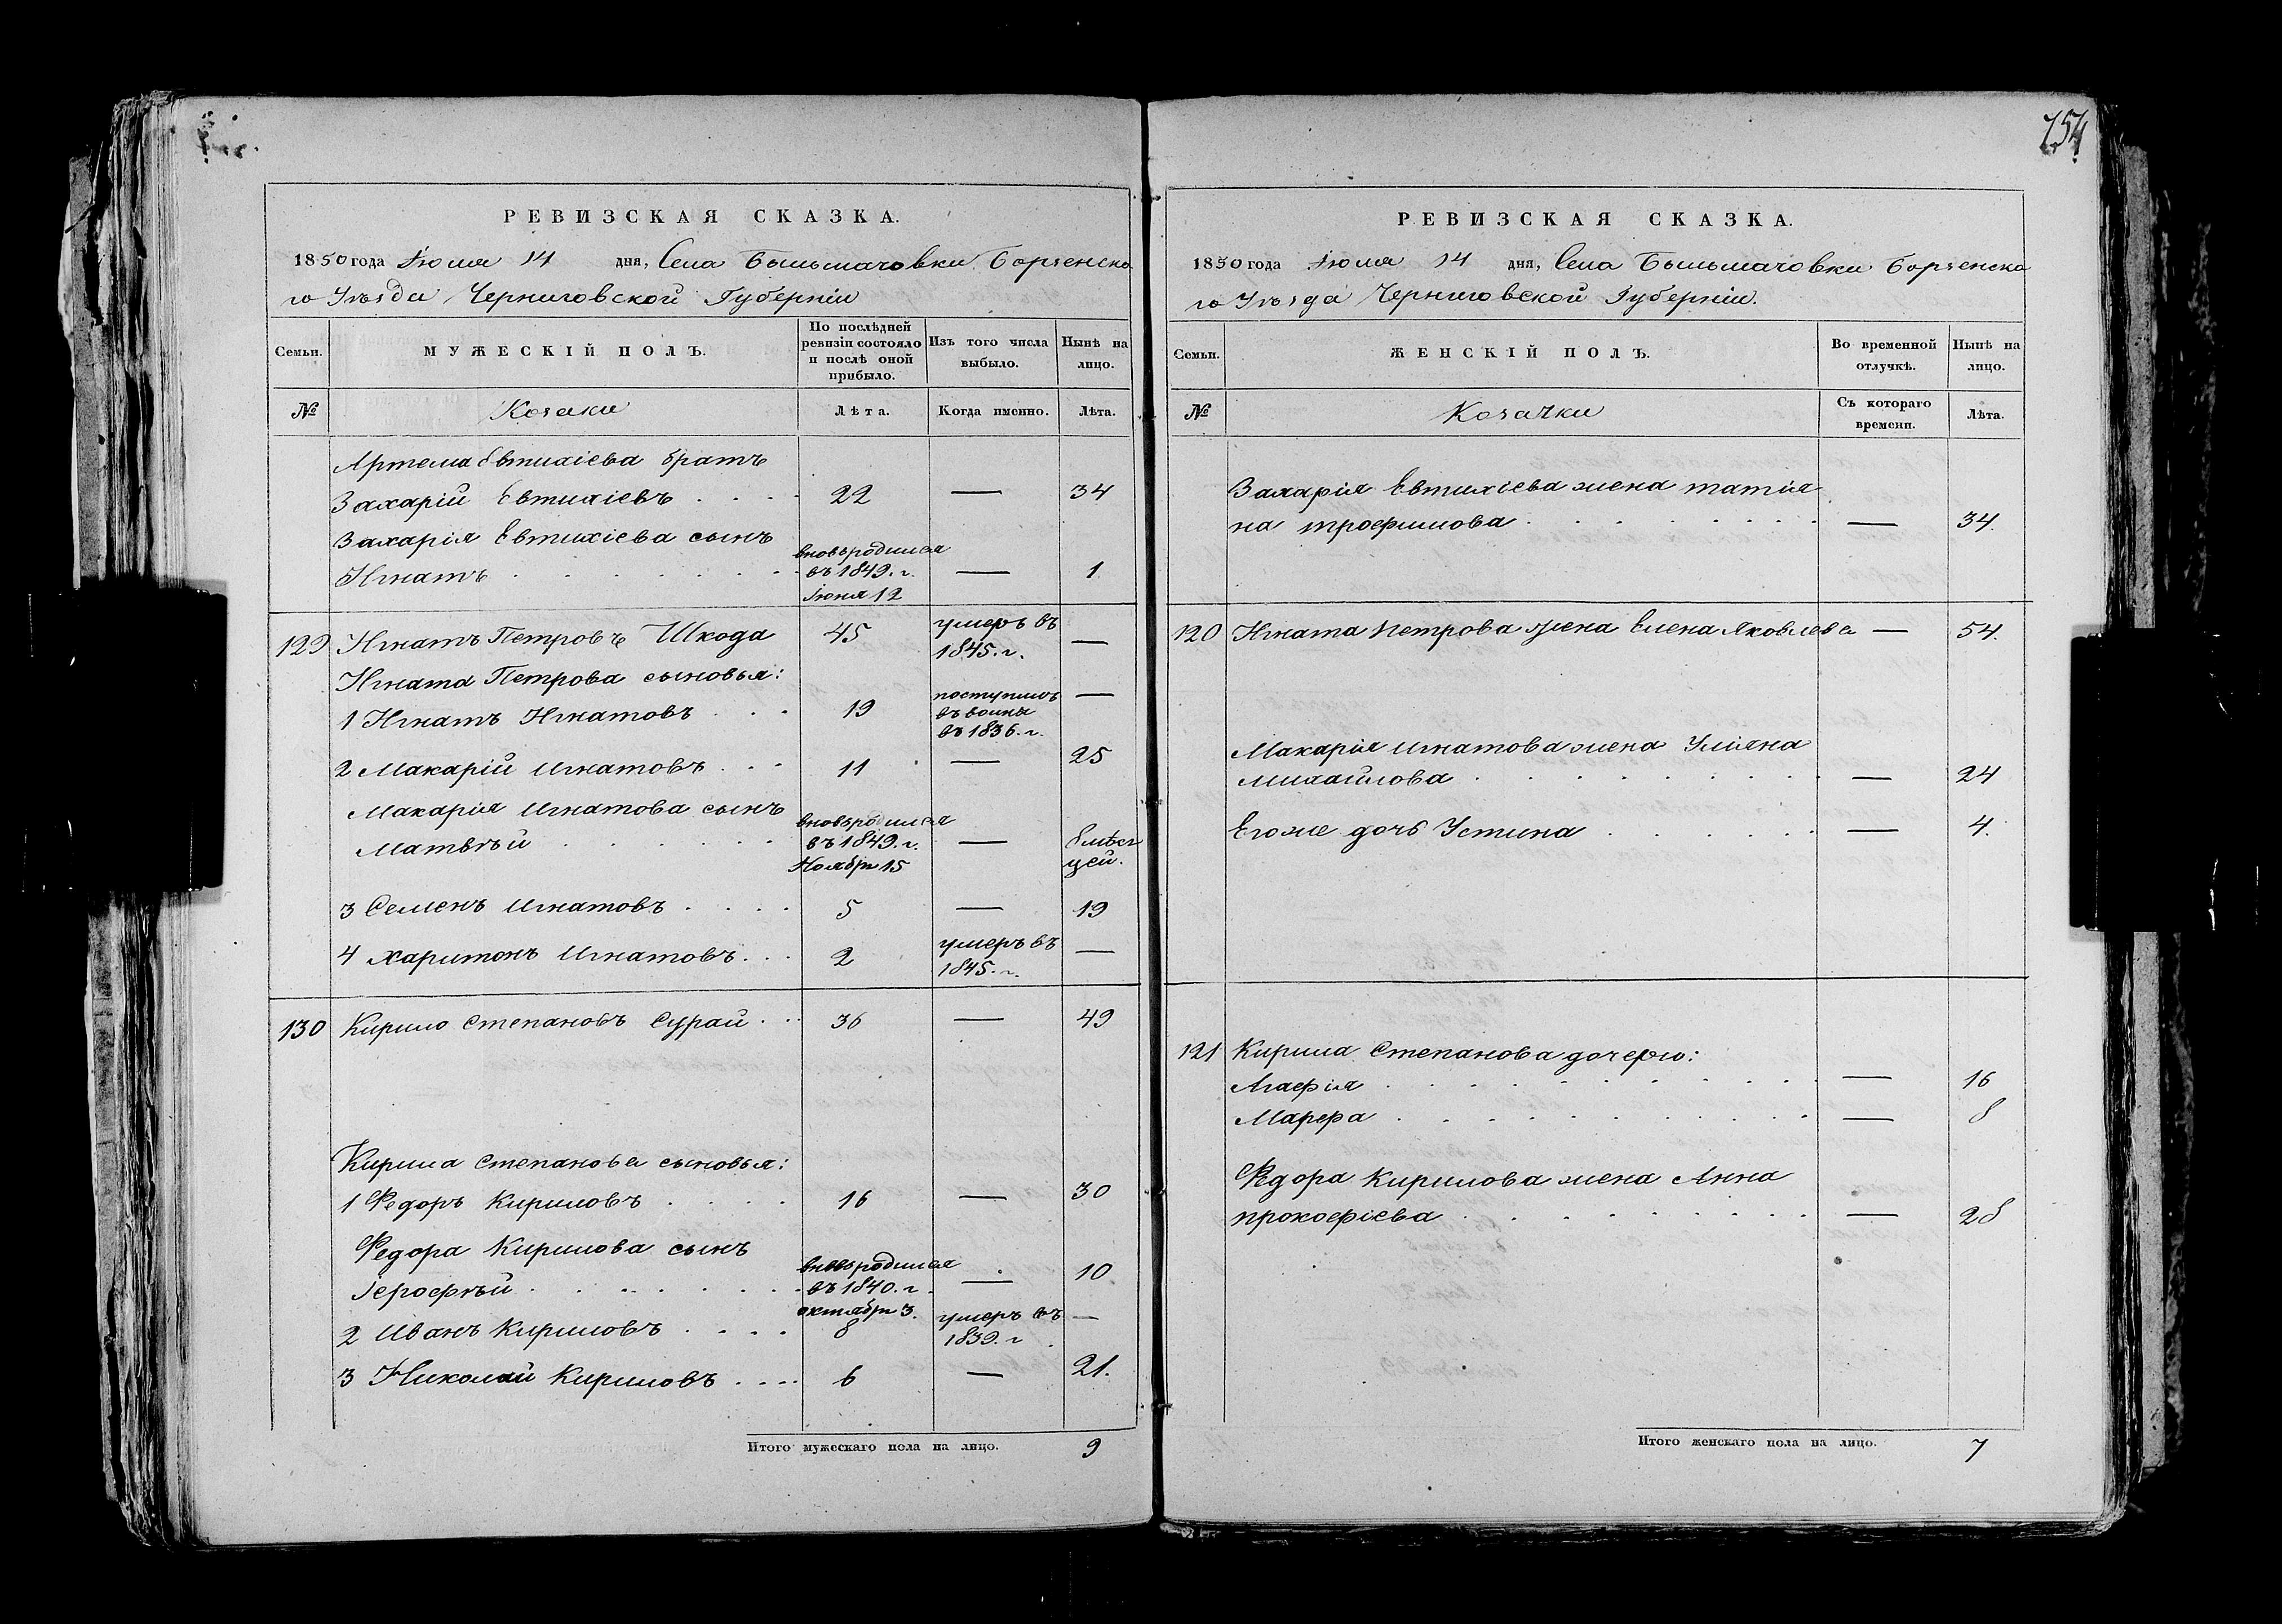 РЕВИЗСКАЯ СКАЗКА.
1850 года Іюля 14 дня, Села Бельмачовки Борзенска
го Уѣзда Черниговской Губерніи
Семьи.
МУЖЕСКІЙ ПОЛЪ.
По послѣдней ревизіи состояло и послѣ оной прибыло.
Изъ того числа выбыло.
Нынѣ на лицо.
№
Козаки
Лѣта.
Когда именно.
Лѣта.
Артема Евтихіева братъ
Захарій Евтихіевъ . . . 22 — 34
Захарія Евтихіева сынъ
Игнатъ . . . . . . вновь родился въ 1849. г. Іюня 12 — 1
129 Игнатъ Петровъ Шкода 45 умеръ въ 1845. г. —
Игната Петрова сыновья:
1 Игнатъ Игнатовъ . . . 19 поступилъ въ воины въ 1836. г. —
2 Макарій Игнатовъ . . . 11 — 25
Макарія Игнатова сынъ
Матвѣй . . . . . вновь родился въ 1849. г. Ноября 15 — 8 мѣся цей.
3 Семенъ Игнатовъ . . . . 5 — 19
4 Харитонъ Игнатовъ . . . 2 умеръ въ 1845. г. —
130 Кирило Степановъ Сурай . . 36 — 49
Кирила Степанова сыновья:
1 Федоръ Кириловъ . . . . 16 — 30
Федора Кирилова сынъ
Іерофѣй . . . . . . вновь родился въ 1840. г. октября 3. — 10
2 Иванъ Кириловъ . . . . 8 умеръ въ 1839. г —
3 Николай Кириловъ . . . . 6 — 21.
Итого мужескаго пола на лицо. 9
754
РЕВИЗСКАЯ СКАЗКА.
1850 года Іюля 14 дня, Села Бельмачовки Борзенска
го Уѣзда Черниговской Губерніи.
Семьи.
ЖЕНСКІЙ ПОЛЪ.
Во временной отлучкѣ.
Нынѣ на лицо.
№
Козачки
Съ котораго времени.
Лѣта.
Захарія Евтихіева жена татія
на трофимова . . . . . . . — 34.
120 Игната Петрова жена Елена Яковлева — 54.
Макарія Игнатова жена Уліяна
Михайлова . . . . . . . — 24
Егоже дочь Устина . . . . . — 4.
121 Кирила Степанова дочерю:
Агафія . . . . . . . . — 16
Марфа . . . . . . . . — 8
Федора Кирилова жена Анна
прокофіева . . . . . . . — 28
Итого женскаго пола на лицо. 7